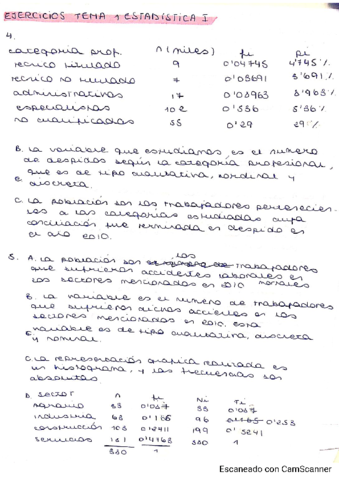 EJERCICIOS TEMA 1 ESTADÍSTICA I
4.
categoría prof. n (miles) fi pi
tecnico titulado 9 0'04745 4'745%
tecnico no titulado 7 0'03691 3'691%
administrativos 17 0'08963 8'963%
especialistas 102 0'536 53'6%
no cualificados 55 0'29 29%
B. La variable que estudiamos es el numero
de despidos según la categoría profesional,
que es de tipo cualitativa, ordinal y
discreta.
C. La población son los trabajadores pertenecien-
tes a las categorias estudiadas cuya
conciliación fue terminada en despido en
el año 2010.
5. A. La población son los trabajadores
que sufrieron accidentes laborales en
los sectores mencionados en 2010 mortales
B. La variable es el numero de trabajadores
que sufrieron dichos accidentes en los
sectores mencionados en 2010. esta
variable es de tipo cualitativa, discreta
y nominal.
C. La representación gráfica realizada es
un histograma, y las frecuencias son
absolutas
D. Sector n fi Ni Fi
agrario
industria
construcción 199
servicios 330 1
330 1
Escaneado con CamScanner